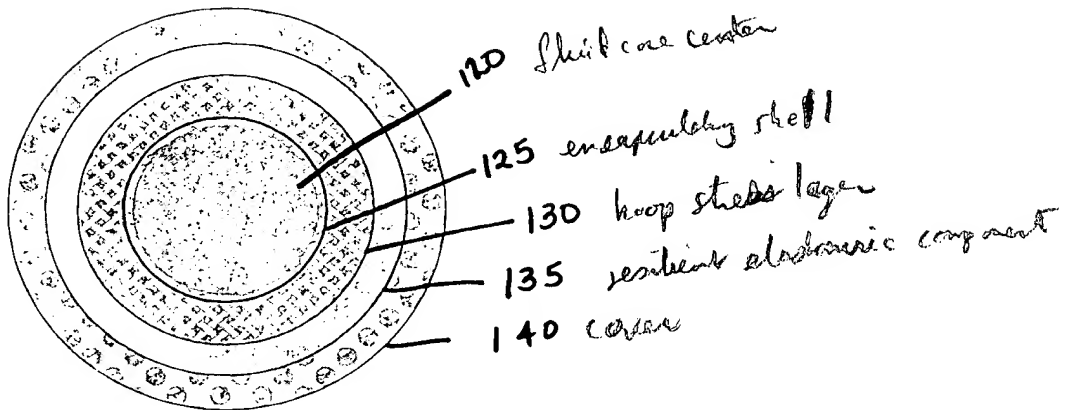 120 fluid core center
125 encapsulating shell
130 hoop stress layer
135 resilient elastomeric component
140 cover